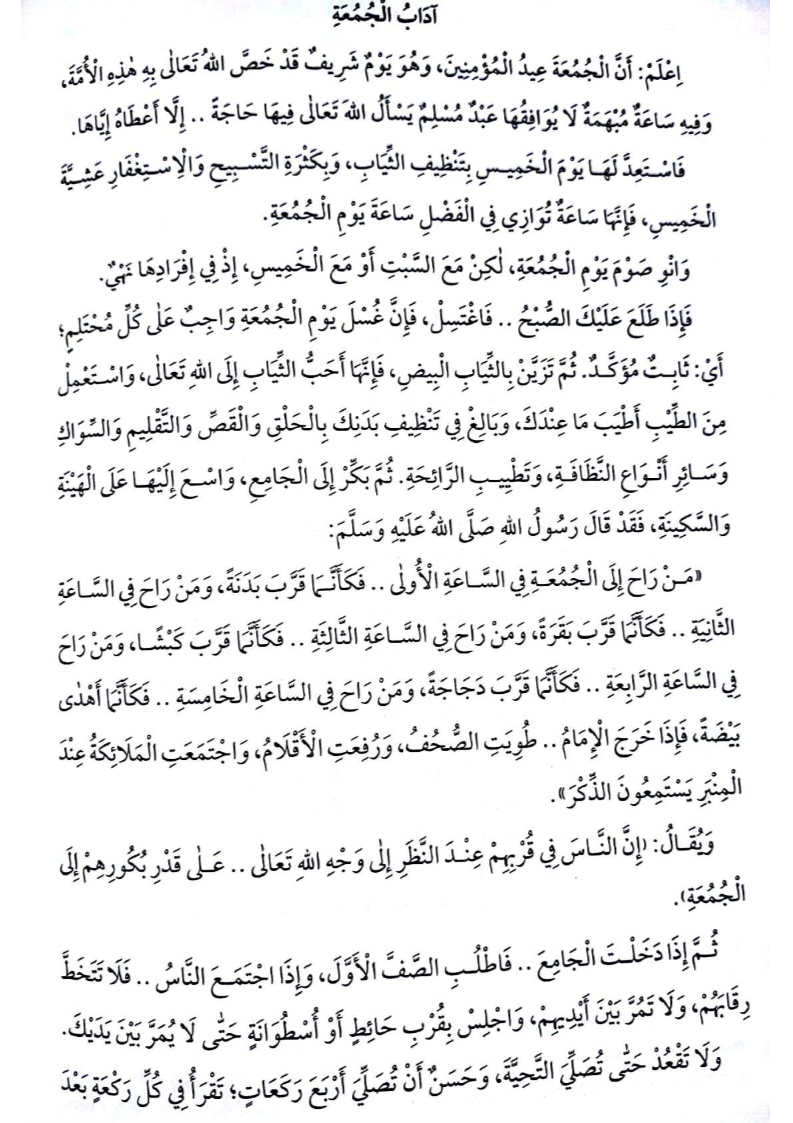 آدَابُ الْجُمُعَةِ
اِعْلَمْ: أَنَّ الْجُمُعَةَ عِيدُ الْمُؤْمِنِينَ، وَهُوَ يَوْمٌ شَرِيفٌ قَدْ خَصَّ اللهُ تَعَالٰى بِهِ هٰذِهِ الْأُمَّةَ،
وَفِيهِ سَاعَةٌ مُبْهَمَةٌ لَا يُوَافِقُهَا عَبْدٌ مُسْلِمٌ يَسْأَلُ اللهَ تَعَالٰى فِيهَا حَاجَةً .. إِلَّا أَعْطَاهُ إِيَّاهَا.
فَاسْتَعِدَّ لَهَا يَوْمَ الْخَمِيسِ بِتَنْظِيفِ الثِّيَابِ، وَبِكَثْرَةِ التَّسْبِيحِ وَالْاِسْتِغْفَارِ عَشِيَّةَ
الْخَمِيسِ، فَإِنَّهَا سَاعَةٌ تُوَازِي فِي الْفَضْلِ سَاعَةَ يَوْمِ الْجُمُعَةِ.
وَانْوِ صَوْمَ يَوْمِ الْجُمُعَةِ، لٰكِنْ مَعَ السَّبْتِ أَوْ مَعَ الْخَمِيسِ، إِذْ فِي إِفْرَادِهَا نَهْيٌ.
فَإِذَا طَلَعَ عَلَيْكَ الصُّبْحُ .. فَاغْتَسِلْ، فَإِنَّ غُسْلَ يَوْمِ الْجُمُعَةِ وَاجِبٌ عَلٰى كُلِّ مُحْتَلِمٍ؛
أَيْ: ثَابِتٌ مُؤَكَّدٌ. ثُمَّ تَزَيَّنْ بِالثِّيَابِ الْبِيضِ، فَإِنَّهَا أَحَبُّ الثِّيَابِ إِلَى اللهِ تَعَالٰى، وَاسْتَعْمِلْ
مِنَ الطِّيْبِ أَطْيَبَ مَا عِنْدَكَ، وَبَالِغْ فِي تَنْظِيفِ بَدَنِكَ بِالْحَلْقِ وَالْقَصِّ وَالتَّقْلِيمِ وَالسِّوَاكِ
وَسَائِرِ أَنْوَاعِ النَّظَافَةِ، وَتَطْيِيبِ الرَّائِحَةِ. ثُمَّ بَكِّرْ إِلَى الْجَامِعِ، وَاسْعَ إِلَيْهَا عَلَى الْهَيْنَةِ
وَالسَّكِينَةِ، فَقَدْ قَالَ رَسُولُ اللهِ صَلَّى اللهُ عَلَيْهِ وَسَلَّمَ:
«مَنْ رَاحَ إِلَى الْجُمُعَةِ فِي السَّاعَةِ الْأُولٰى .. فَكَأَنَّمَا قَرَّبَ بَدَنَةً، وَمَنْ رَاحَ فِي السَّاعَةِ
الثَّانِيَةِ .. فَكَأَنَّمَا قَرَّبَ بَقَرَةً، وَمَنْ رَاحَ فِي السَّاعَةِ الثَّالِثَةِ .. فَكَأَنَّمَا قَرَّبَ كَبْشًا، وَمَنْ رَاحَ
فِي السَّاعَةِ الرَّابِعَةِ .. فَكَأَنَّمَا قَرَّبَ دَجَاجَةً، وَمَنْ رَاحَ فِي السَّاعَةِ الْخَامِسَةِ .. فَكَأَنَّمَا أَهْدٰى
بَيْضَةً، فَإِذَا خَرَجَ الْإِمَامُ .. طُوِيَتِ الصُّحُفُ، وَرُفِعَتِ الْأَقْلَامُ، وَاجْتَمَعَتِ الْمَلَائِكَةُ عِنْدَ
الْمِنْبَرِ يَسْتَمِعُونَ الذِّكْرَ».
وَيُقَالُ: (إِنَّ النَّاسَ فِي قُرْبِهِمْ عِنْدَ النَّظَرِ إِلٰى وَجْهِ اللهِ تَعَالٰى .. عَلٰى قَدْرِ بُكُورِهِمْ إِلَى
الْجُمُعَةِ).
ثُمَّ إِذَا دَخَلْتَ الْجَامِعَ .. فَاطْلُبِ الصَّفَّ الْأَوَّلَ، وَإِذَا اجْتَمَعَ النَّاسُ .. فَلَا تَتَخَطَّ
رِقَابَهُمْ، وَلَا تَمُرَّ بَيْنَ أَيْدِيهِمْ، وَاجْلِسْ بِقُرْبِ حَائِطٍ أَوْ أُسْطُوَانَةٍ حَتّٰى لَا يُمَرَّ بَيْنَ يَدَيْكَ.
وَلَا تَقْعُدْ حَتّٰى تُصَلِّيَ التَّحِيَّةَ، وَحَسَنٌ أَنْ تُصَلِّيَ أَرْبَعَ رَكَعَاتٍ؛ تَقْرَأُ فِي كُلِّ رَكْعَةٍ بَعْدَ